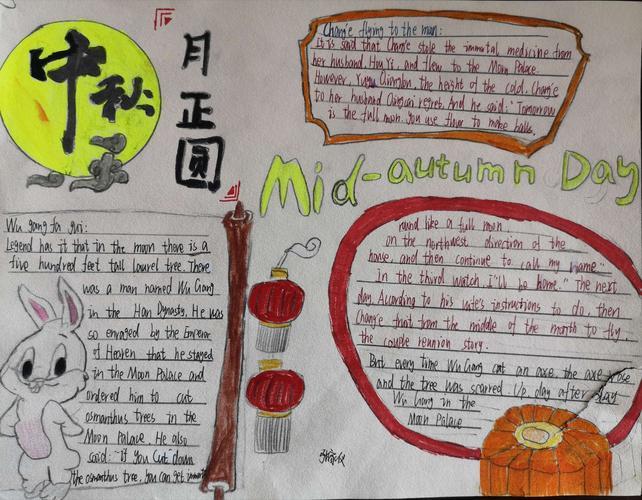 中秋
月正圆
Chang'e flying to the moon:
It is said that Chang'e stole the immortal medicine from
her husband, Hou Yi, and flew to the Moon Palace.
However, the height of the cold, Chang'e
to her husband regret. And he said: "Tomorrow
is the full moon. you use flour to make balls,
Mid-autumn Day
Wu gang fa gui:
Legend has it that in the moon there is a
five hundred feet tall laurel tree. There
was a man named Wu Gang
in the Han Dynasty. He was
so enraged by the Emperor
of Heaven that he stayed
in the Moon Palace and
ordered him to cut
osmanthus trees in the
Moon Palace. He also
said: "if you cut down
the osmanthus tree, you can get
round like a full moon
on the northwest direction of the
house, and then continue to call my name."
In the third watch, i'll be home." The next
day. According to his wife's instructions to do, then
Chang'e from the middle of the month to fly,
the couple reunion story.
But every time Wu Gang cut an axe, the axe rose
and the tree was scarred up, day after day
Wu Gang in the
Moon Palace